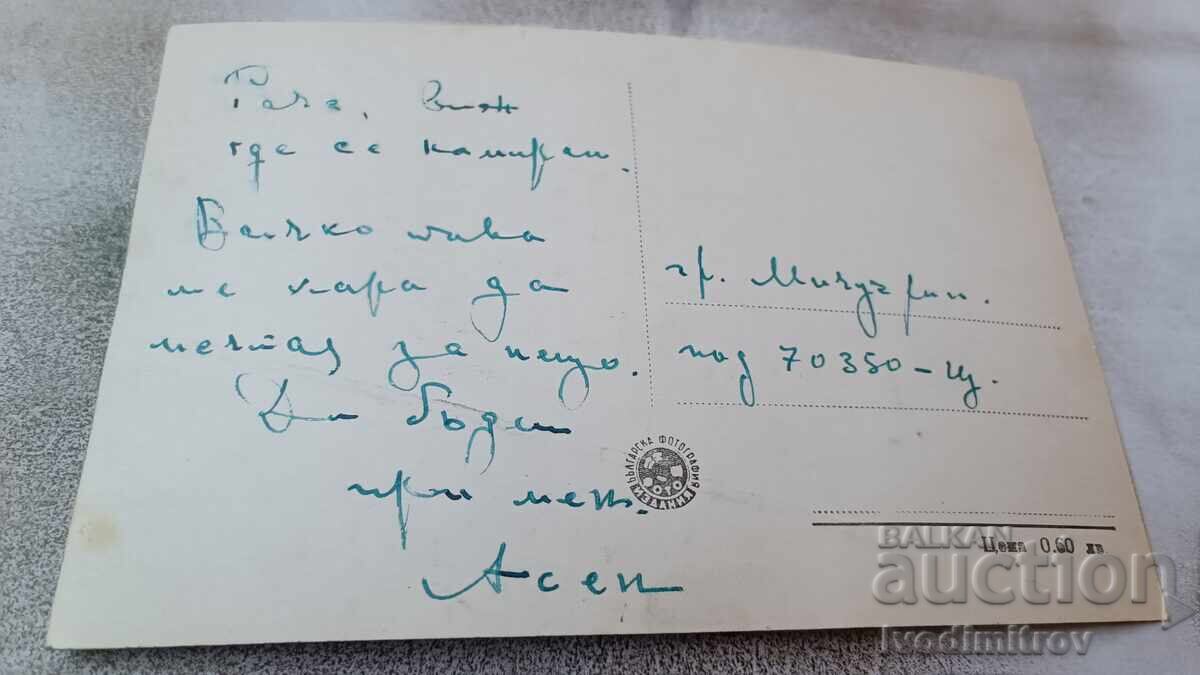 Гача, виж
где се намирам.
Всичко това
ме кара да
мечтая за нещо.
Да бъдеш
при мен.
Асен
гр. Мичурин.
под 70350-Щ.
БЪЛГАРСКА ФОТОГРАФИЯ
ФОТО
ИЗДАНИЯ
Цена 0.60 лв.
BALKAN
auction
Ivodimitrov